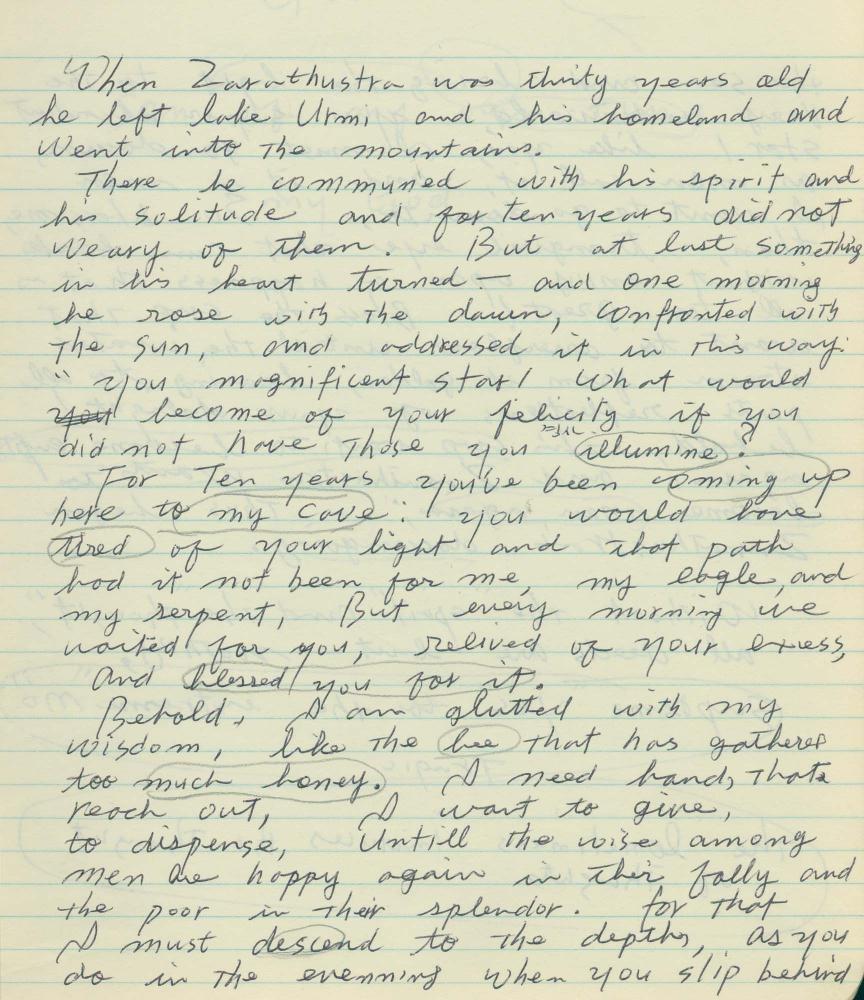 When Zarathustra was thirty years old
he left lake Urmi and his homeland and
went into the mountains.
There he communed with his spirit and
his solitude and for ten years did not
weary of them. But at last something
in his heart turned — and one morning
he rose with the dawn, confronted with
the sun, and addressed it in this way:
" you magnificent star! What would
you become of your felicity if you
did not have those you illumine?
For Ten years you've been coming up
here to my cave: you would have
tired of your light and that path
had it not been for me, my eagle, and
my serpent, But every morning we
waited for you, relived of your exess,
and blessed you for it.
Behold, I am glutted with my
wisdom, like the bee that has gathered
too much honey. I need hands that
reach out, I want to give,
to dispense, Untill the wise among
men are happy again in their folly and
the poor in their splendor. for that
I must descend to the depths, as you
do in the evenning when you slip behind